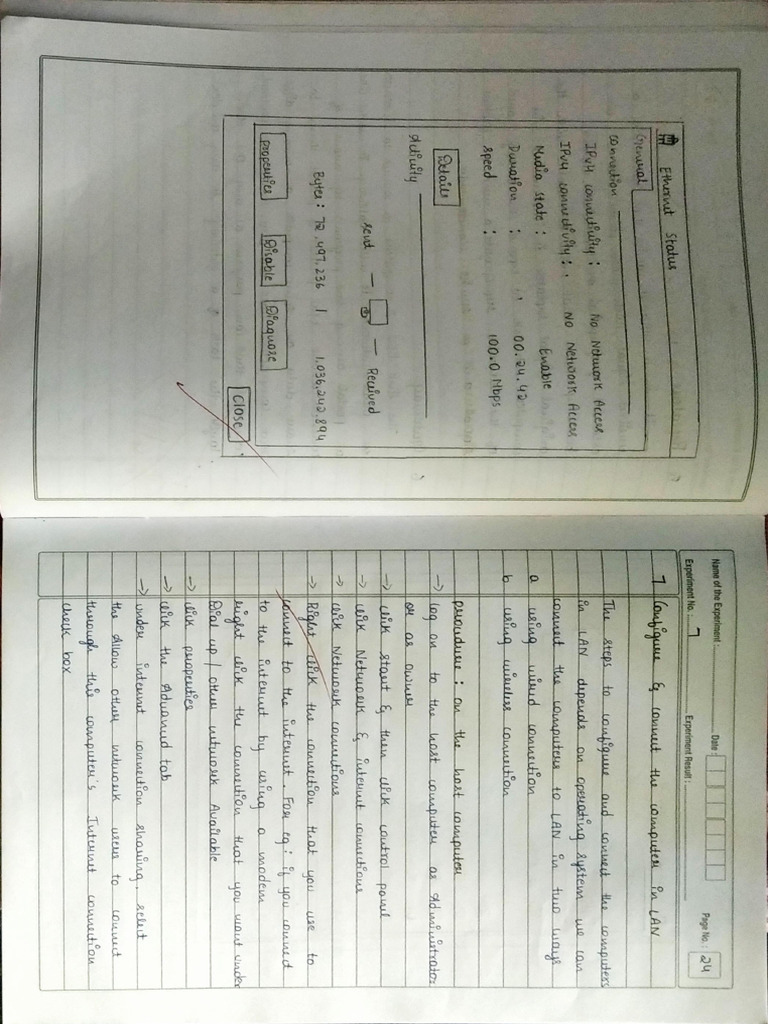 Ethernet Status
General
connection
IPv4 connectivity : No Network Access
IPv4 connectivity : No Network Access
Media State : Enable
Duration : 00.24.42
Speed : 100.0 Mbps
Details
Activity
Sent — — Received
Bytes : 72,497,236 | 1,036,242,894
properties Disable Diagnose
Close
Name of the Experiment : Date :
Page No. : 24
Experiment No. : 7 Experiment Result :
7 Configure & connect the computer in LAN
The steps to configure and connect the computers
in LAN depends on operating system we can
connect the computers to LAN in two ways
a using wired connection
b using wireless connection
procedure : on the host computer
→ log on to the host computer as Administrator
or as owner
→ click start & then click control panel
→ click Network & internet connections
→ click Network connections
→ Right click the connection that you use to
connect to the internet. For eg : if you connect
to the internet by using a modem
right click the connection that you want under
Dial up / other network Available
→ click properties
→ click the Advanced tab
→ under internet connection sharing, select
the Allow other network users to connect
through this computer's Internet connection
check box